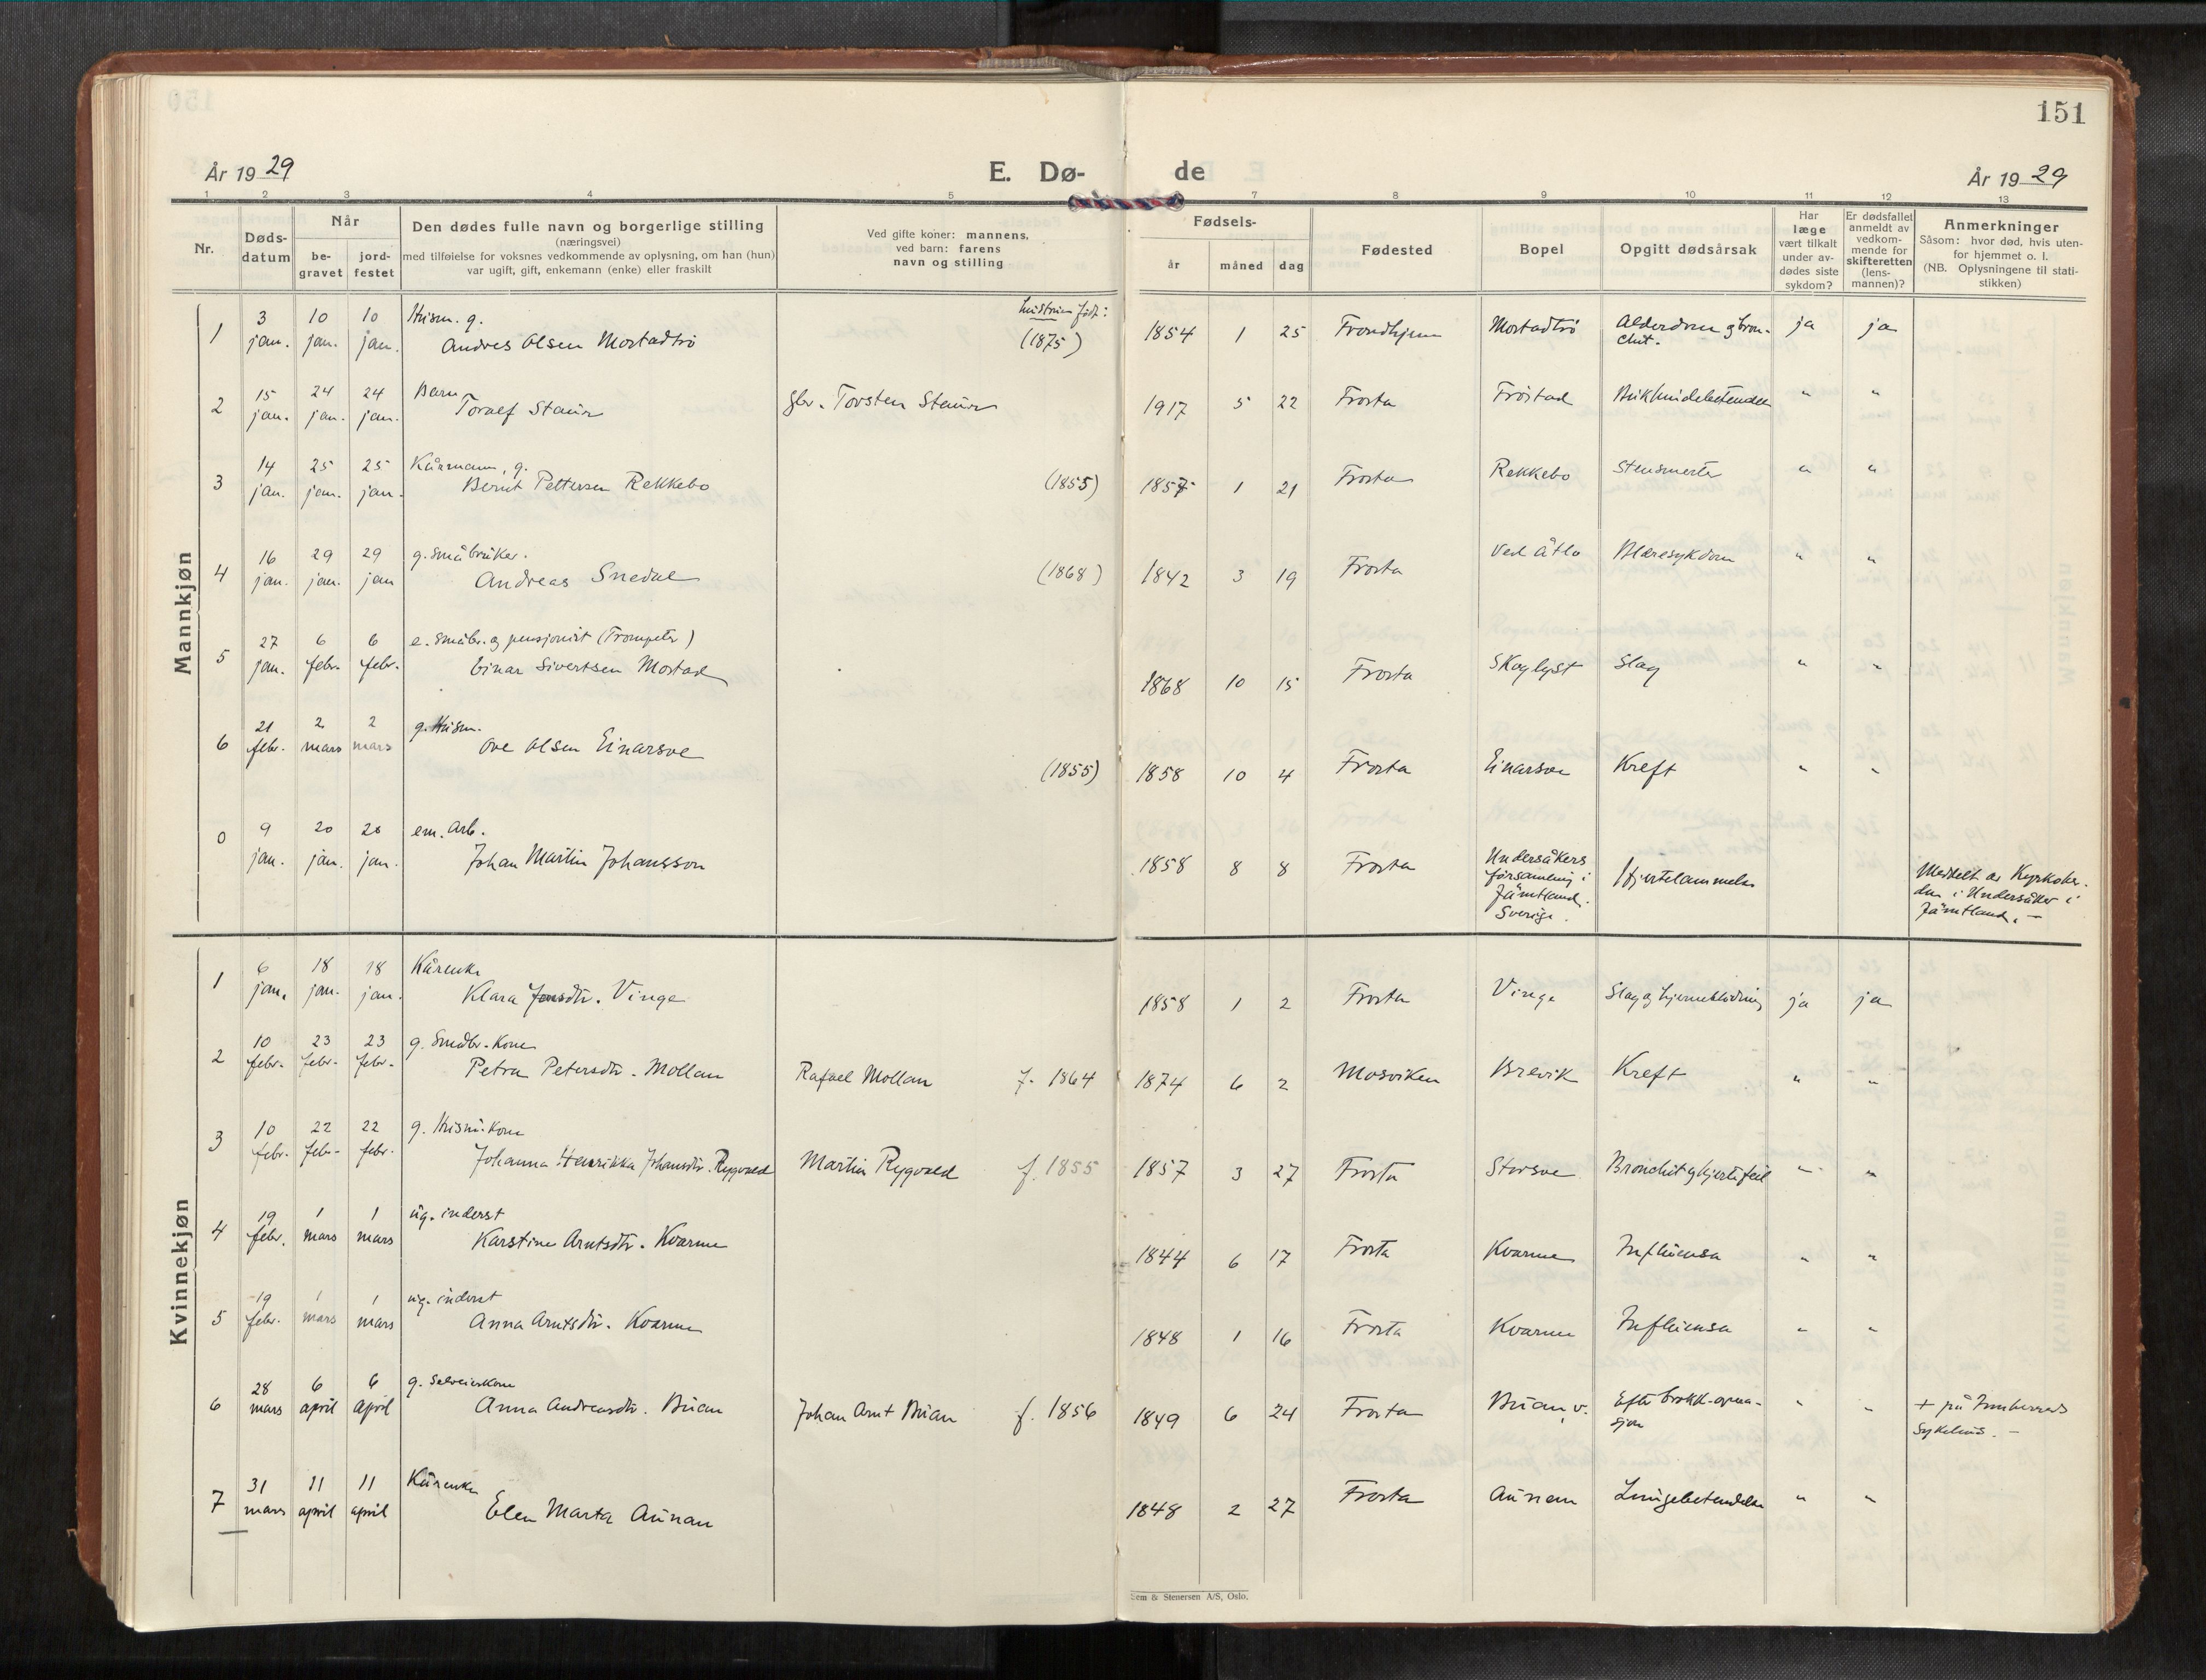 151
År 1929
E. Dø-
de
År 1929
1 2 3 4 5 7 8 9 10 11 12 13
Nr.
Døds-
datum
Når
be-
gravet
jord-
festet
Den dødes fulle navn og borgerlige stilling
(næringsvei)
med tilføielse for voksnes vedkommende av oplysning, om han (hun)
var ugift, gift, enkemann (enke) eller fraskilt
Ved gifte koner: mannens,
ved barn: farens
navn og stilling
Fødsels-
år måned dag
Fødested
Bopel
Opgitt dødsårsak
Har
læge
vært tilkalt
under av-
dødes siste
sykdom?
Er dødsfallet
anmeldt av
vedkom-
mende for
skifteretten
(lens-
mannen)?
Anmerkninger
Såsom: hvor død, hvis uten-
for hjemmet o. l.
(NB. Oplysningene til stati-
stikken)
Mannkjøn
3 10 10 Husm. g. hustruen født:
1 jan. jan. jan. Andres Olsen Mostadtrö (1875) 1854 1 25 Trondhjem Mostadtrö Alderdom og bron-
chit. ja ja
15 24 24 Barn
2 jan. jan. jan. Toralf Staur gbr. Torsten Staur 1917 5 22 Frosta Fröstad Bukhindebetendelse " "
14 25 25 Kårmann, g.
3 jan. jan. jan. Bernt Pettersen Rekkebo (1855) 1857 1 21 Frosta Rekkebo Stensmerter " "
16 29 29 g. småbruker.
4 jan. jan. jan Andreas Snedal (1868) 1842 3 19 Frosta Ved Åtlo Blæresykdom " "
27 6 6 e. småbr. og pensjonist (Trompeter)
5 jan. febr. febr. Einar Sivertsen Mostad 1868 10 15 Frosta Skoglyst Slag " "
21 2 2 g. Husm.
6 febr. mars mars Ove Olsen Einarsve (1855) 1858 10 4 Frosta Einarsve Kreft " "
9 20 20 em. Arb.
0 jan. jan. jan. Johan Martin Johansson 1858 8 8 Frosta Undersåkers
församling i
Jämtland.
Sverige. Hjertelammelse Meddelt av Kyrkoher-
den i Undersåker i
Jämtland. –
Kvinnekjøn
6 18 18 Kårenke
1 jan. jan. jan. Klara Jonsdtr. Vinge 1858 1 2 Frosta Vinge Slag og hjerneblödning ja ja
10 23 23 g. Småbr. Kone
2 febr. febr. febr. Petra Petersdtr. Mollan Rafael Mollan f. 1864 1874 6 2 Mosviken Brevik Kreft " "
10 22 22 g. Husm. Kone
3 febr. febr. febr. Johanna Henrikka Johansdtr. Rygvold Martin Rygvold f. 1855 1857 3 27 Frosta Storsve Bronchit og hjertefeil " "
19 1 1 ug. inderst
4 febr. mars mars Karstine Arntsdtr. Kvarme 1844 6 17 Frosta Kvarme Influensa " "
19 1 1 ug. inderst
5 febr. mars mars Anna Arntsdtr. Kvarme 1848 1 16 Frosta Kvarme Influensa " "
28 6 6 g. selveierkone
6 mars april april Anna Andreasdtr. Buan Johan Arnt Buan f. 1856 1849 6 24 Frosta Buan v. Efter brokk-opera-
sjon " " + på Innherreds
Sykehus. –
31 11 11 Kårenke
7 mars april april Elen Marta Aunan 1848 2 27 Frosta Aunan Lungebetendelse " "
Sem & Stenersen A/S, Oslo.